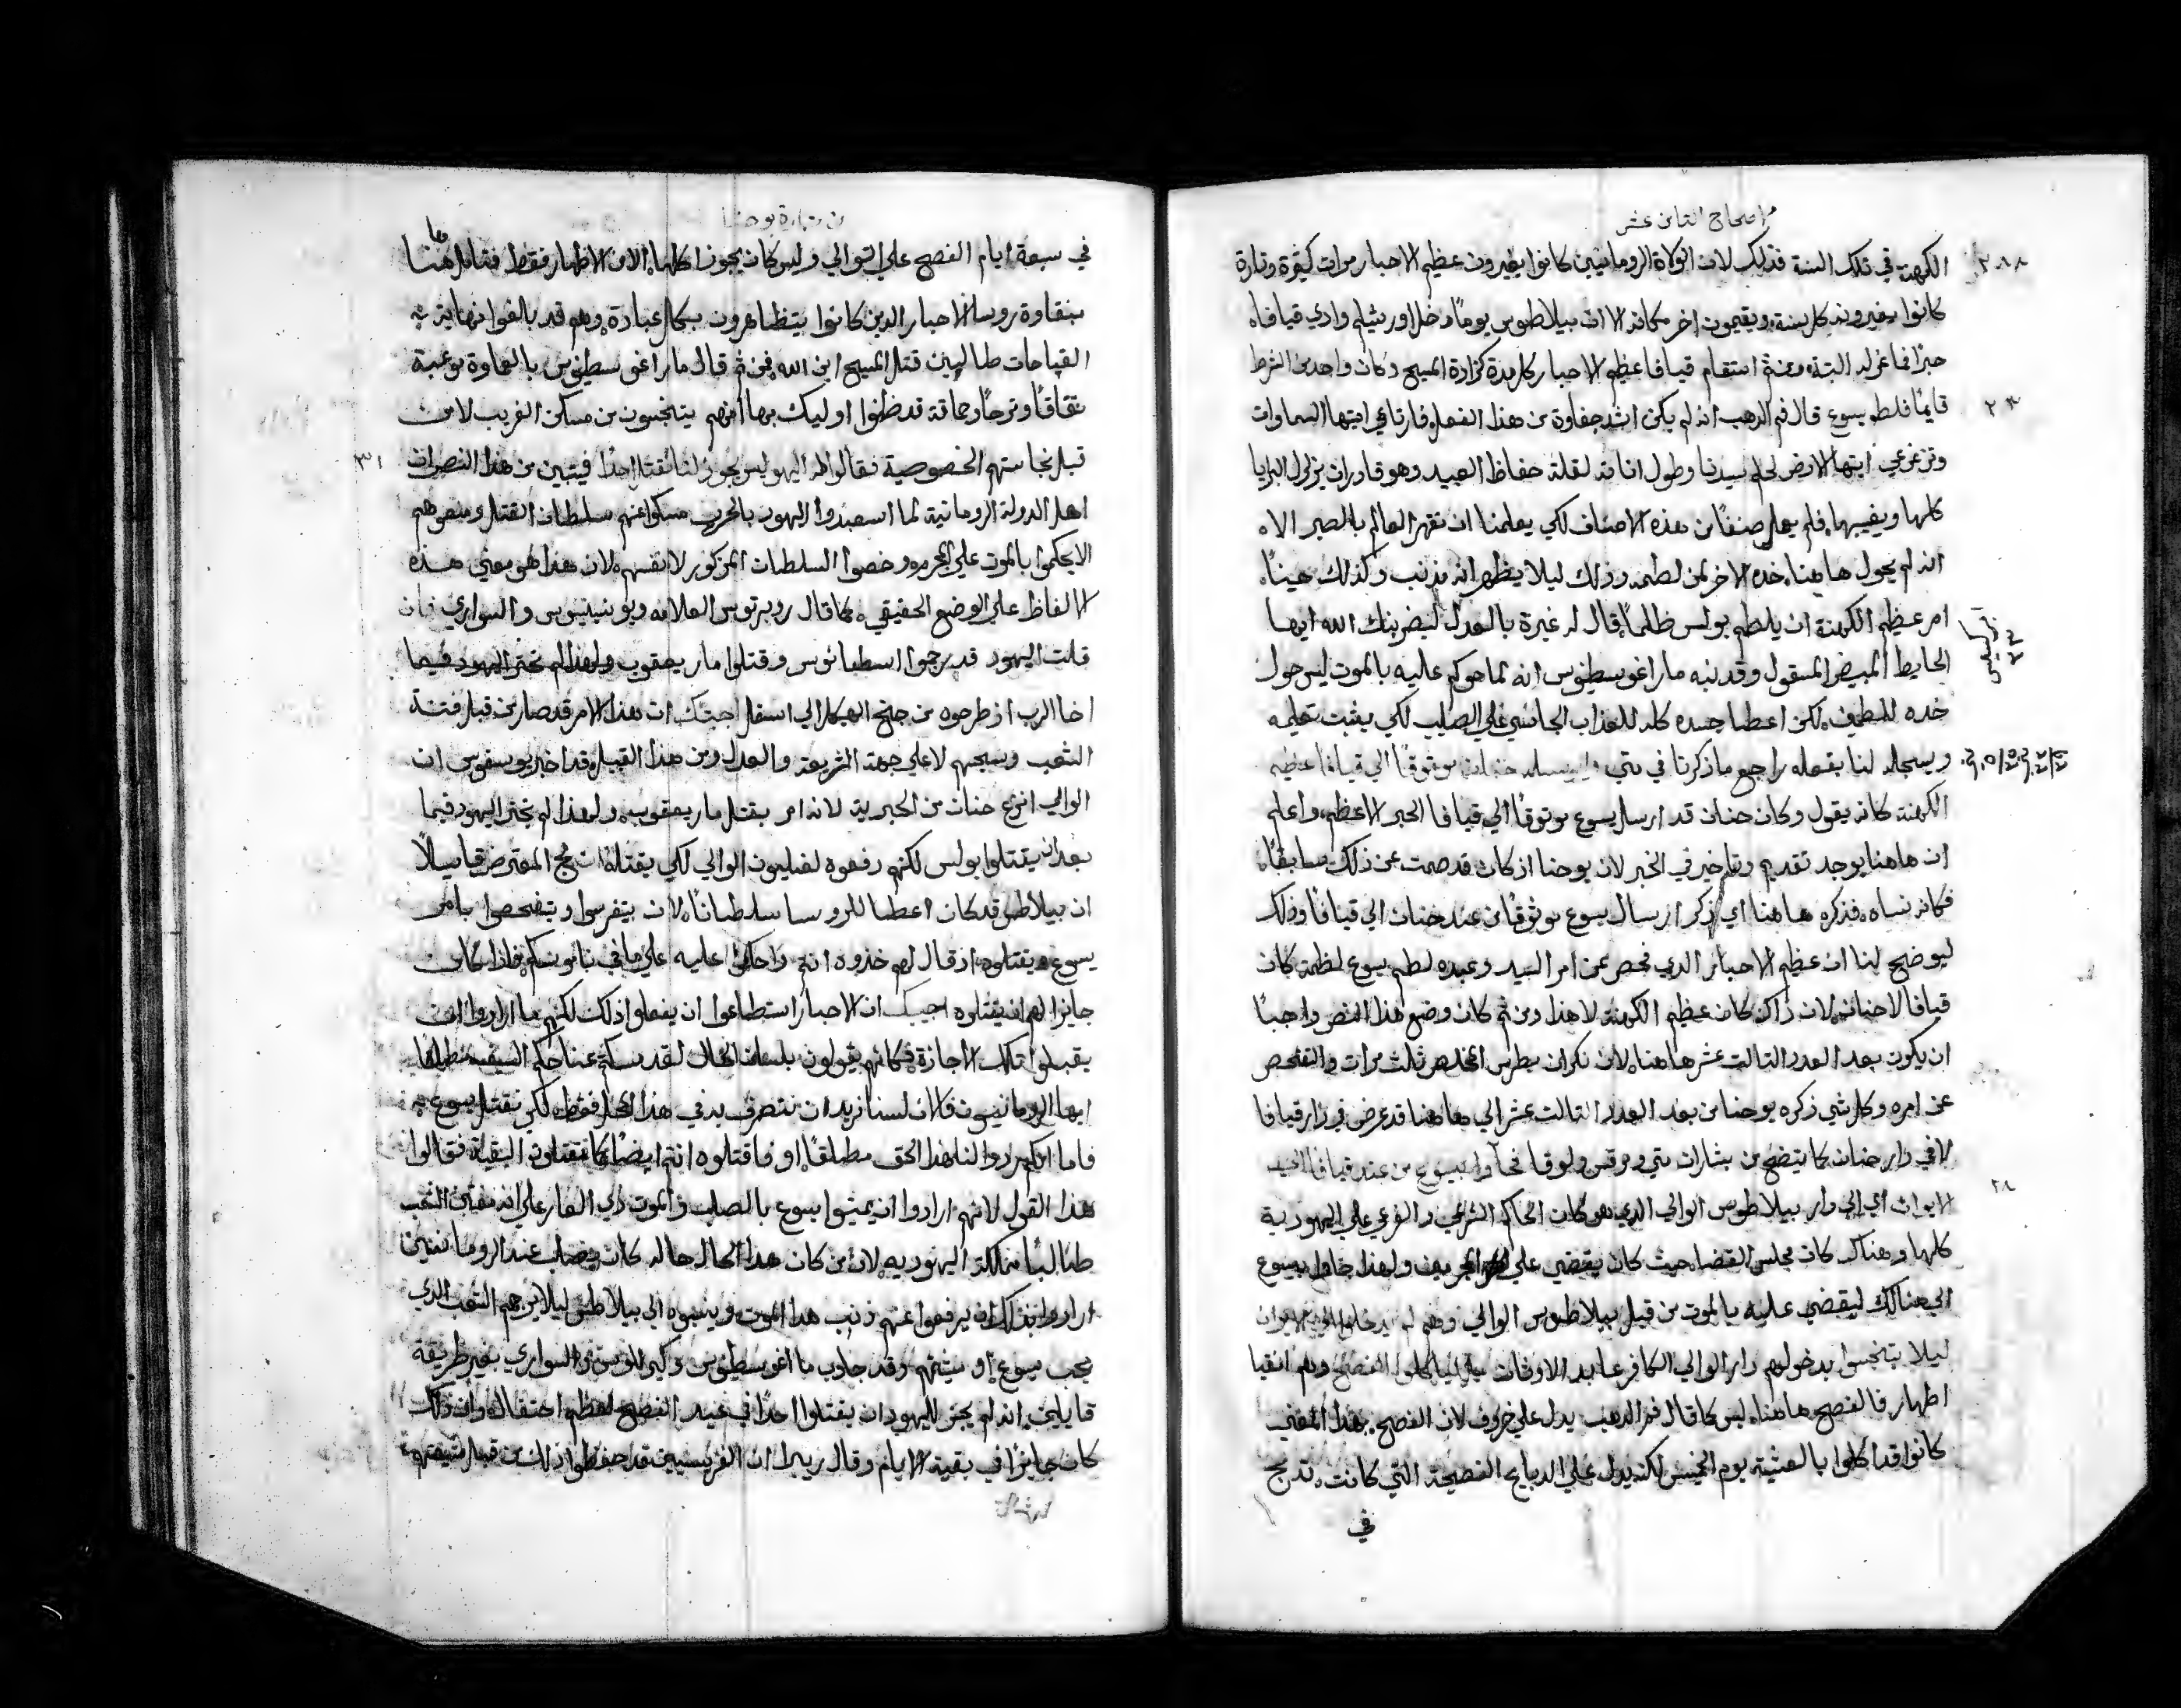 اصحاح الثامن عشر
الكهنة في تلك السنة فذلك لان الولاة الرومانيين كانوا يغيرون عظيم الاحبار مرات كثيرة وتارة
كانوا يغيرونه كل سنة ويقيمون اخر مكانه الا ان بيلاطوس يوماً دخل اورشليم وادي قيافا
حبرًا فما عزله البتة ومن ثم استقام قيافا عظيم الاحبار كل مدة كرازة المسيح وكان واحد من الشرط
٢٣
قايمًا فلطم يسوع قال فم الدهب انه لم يكن اشد جفاوة من هذا الفعل فارتاعي ايتها السماوات
وتزعزعي ايتها الارض لحلم سيدنا وطول اناته لقلة حفاظ العبيد وهو قادر ان يزلزل البرايا
كلها ويغيبها فلم يعمل صنفًا من هذه الاصناف لكي يعلمنا ان نقهر العالم بالصبر الا
انه لم يحول هاهنا خده الاخر لمن لطمه وذلك ليلا يظهر انه مذنب وكذلك حينًا
امر عظيم الكهنة ان يلطم بولس ظلمًا قال له غيرة بالعدل ليضربنك الله ايها
الحايط المبيض المسقول وقد نبه مار اغوسطينوس انه لما حوكم عليه بالموت ليس حول
خده للطمة لكن اعطا جسده كله للعذاب الجاسي علي الصليب لكي يثبت تعليمه
ويسجله لنا بفعله راجع ما ذكرنا في متي موثوقًا الي قيافا عظيم
الكهنة كانه يقول وكان حنان قد ارسل يسوع موثوقًا الي قيافا الحبر الاعظم واعلم
ان هاهنا يوجد تقديم وتاخير في الخبر لان يوحنا اذ كان قد صمت عن ذلك سابقًا
فكانه نساه فذكره هاهنا اي ذكر ارسال يسوع موثوقًا من عند حنان الي قيافا وذلك
ليوضح لنا ان عظيم الاحبار الدي فحص عن امر السيد وعبده لطم يسوع لطمة كان
قيافا لا حنان لان ذاك كان عظيم الكهنة لا هذا ومن ثم كان وضع هذا النص واجبًا
ان يكون بعد العدد التالت عشر هاهنا لان نكران بطرس المخلص ثلث مرات والتفحص
عن امره وكل شي ذكره يوحنا من بعد العدد التالت عشر الي هاهنا قد عرض في دار قيافا
٢٨
لا في دار حنان كما يتضح من بشارات متي ومرقس ولوقا فجاوا بيسوع من عند قيافا الي
الايوان اي الي دار بيلاطوس الوالي الدي هو كان الحاكم الشرعي والفرعي علي اليهودية
كلها وهناك كان مجلس القضا حيث كان يقضي علي المجرمين ولهذا جاوا بيسوع
الي هنالك ليقضي عليه بالموت من قبل بيلاطوس الوالي وهم لم يدخلوا الي الايوان
ليلا يتنجسوا بدخولهم دار الوالي الكافر عابد الاوتان بل لياكلوا الفصح وهم انقيا
اطهار فالفصح هاهنا ليس كما قال فم الدهب يدل علي خروف لان الفصح بهذا المعني
كانوا قد اكلوا بالعشية يوم الخميس لكنه يدل علي الدبايح الفصحية التي كانت تدبح
في
من بشارة يوحنا
في سبعة ايام الفصح علي التوالي وليس كان يجوز اكلها الا من الاطهار فقط فتامل هنا
بنقاوة روسا الاحبار الدين كانوا يتظاهرون بكل عبادة وهم قد بالغوا نهاية
القباحات طالبين قتل المسيح ابن الله فمن ثم قال مار اغوسطينوس يا لغباوة
نفاقًا ومرحًا وحماقة قد ظنوا اوليك بها انهم يتنجسون من مسكن الغريب لا من
٣١
قبل نجاستهم الخصوصية فقالوا له اليهود ليس يجوز لنا نقتل احدًا فيتبين من هذا النص ان
اهل الدولة الرومانية لما استعبدوا اليهود بالحرب مسكوا عنهم سلطان القتل ومنعوهم
الا يحكموا بالموت علي المجرم وخصوا السلطان المذكور لانفسهم لان هذا هو معني هذه
الالفاظ علي الوضع الحقيقي كما قال روبرتوس العلامة وبونينيوس والسواري فان
قلت اليهود قد رجموا اسطفانوس وقتلوا مار يعقوب
اخا الرب اذ طرحوه من جنح الهيكل الي اسفل اجبتك ان هذا الامر قد صار من قبل فتنة
الشعب وسجسهم لا علي جهة الشريعة والعدل ومن هذا القبيل قد اخبر يوسفوس ان
الوالي انزع حنان من الحبرية لانه امر بقتل مار يعقوب ولهذا لم تجتر اليهود فيما
بعد ان يقتلوا بولس لكنهم رفعوه لفيلكون الوالي لكي يقتله ان لج المعترض قايلاً
ان بيلاطس قد كان اعطا للروسا سلطانًا لان يتفرسوا ويتفحصوا بامر
يسوع ويقتلوه اذ قال لهم خذوه انتم واحكموا عليه علي ما في ناموسكم فاذا كان
جايزًا لهم ان يقتلوه اجيبك ان الاحبار استطاعوا ان يفعلوا ذلك لكنهم ما ارادوا ان
يقبلوا تلك الاجازة فكانهم يقولون بلسان الحال لقد مسكتم عنا حكم السيف مطلقا
ايها الرومانيون فالان لسنا نريد ان نتصرف به في هذا المحل فقط لكي نقتل يسوع
فاما انكم ردوا لنا هذا الحق مطلقًا او فاقتلوه انتم ايضًا كما تقتلون البقية فقالوا
هذا القول لانهم ارادوا ان يميتوا يسوع بالصليب والموت ذي العار علي انه مفتن الشعب
طالبًا مملكة اليهودية لان من كان هذا الحال حاله كان يصلب عند الرومانيين
ارادوا بذلك ان يرفعوا عنهم ذنب هذا الموت وينسبوه الي بيلاطس ليلا يرجمهم الشعب الدي
يحب يسوع وقد جاوب مار اغوسطينوس وكيرللوس والسواري بغير طريقة
قايلين انه لم يجز لليهود ان يقتلوا احدًا في عيد الفصح لعظم احتفاله وان ذلك
كان جايزًا في بقية الايام وقال ريبرا ان الفريسيين قد حفظوا ذلك من قبل